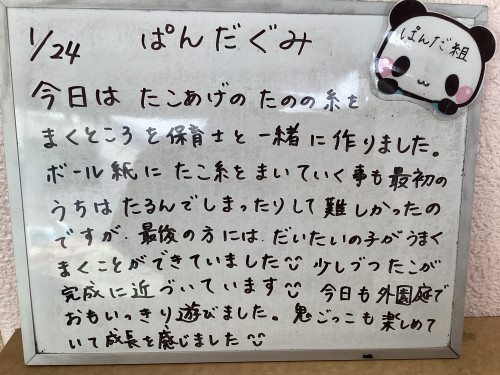 1/24 ぱんだぐみ
ぱんだ組
今日は たこあげの たのの糸を
まくところを保育士と一緒に作りました。
ボール紙にたこ糸をまいていく事も最初の
うちはたるんでしまったりして難しかったの
ですが、最後の方には、だいたいの子がうまく
まくことができていました 少しづつたこが
完成に近づいています 今日も外園庭で
おもいっきり遊びました。鬼ごっこも楽しめて
いて成長を感じました